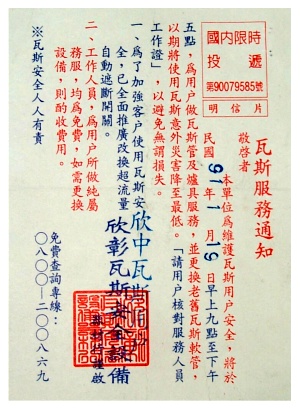 國內限時
投遞
第90079585號
明信片
瓦斯服務通知
敬啓者
本單位爲維護瓦斯用戶安全，將於
民國91年1月19日早上九點至下午
五點，爲用戶做瓦斯管及爐具服務，並更換老舊瓦斯軟管，
以期將使用瓦斯意外災害降至最低。「請用戶核對服務人員
工作證」，以避免無謂損失。
一、爲了加強客户使用瓦斯安
全，已全面推廣改換超流量
自動遮斷開關。
二、工作人員，爲用户所做純屬
務服，均爲免費，如需更換
設備，則酌收費用。
※瓦斯安全人人有責
欣中瓦斯
欣彰瓦斯安全設備
謹啟
免費查詢專線：
〇八〇〇—二〇〇八六九